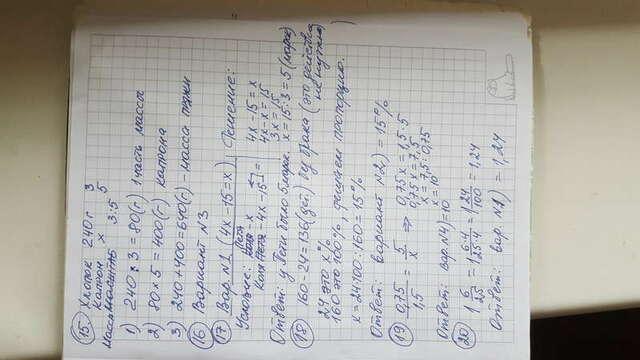 15. Хлопок 240 г 3
Капрон х 5
Масса масштаб 3:5
1) 240 : 3 = 80 (г) 1 часть массы
2) 80 х 5 = 400 (г) капрона
3) 240 + 400 = 640 (г) – масса пряжи
16 Вариант №3
17 Вар. №1 (4х – 15 = х) Решение:
Условие: Петя – х 4х – 15 = х
Коля – 4х – 15 4х – х = 15
3х = 15
Ответ: у Пети было 5 марок. х = 15 : 3 = 5 (марок)
18 160 – 24 = 136 (дет.) без брака (это действие
не нужно)
24 это х%
160 это 100%, решаем пропорцию.
х = 24·100 : 160 = 15%
Ответ: вариант №2) = 15%
19 0,75/1,5 = 5/х ⇒ 0,75х = 1,5·5
0,75х = 7,5
х = 7,5 : 0,75
х = 10
Ответ: вар. №4) = 10
20 1 6/25 = 1 6·4/25·4 = 1 24/100 = 1,24
Ответ: вар. №1) = 1,24